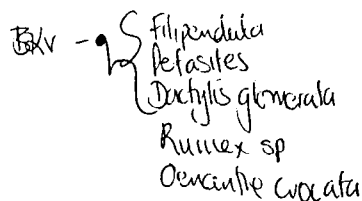 BKV - Filipendula
Petasites
Dactylis glomerata
Rumex sp
Oenanthe crocata